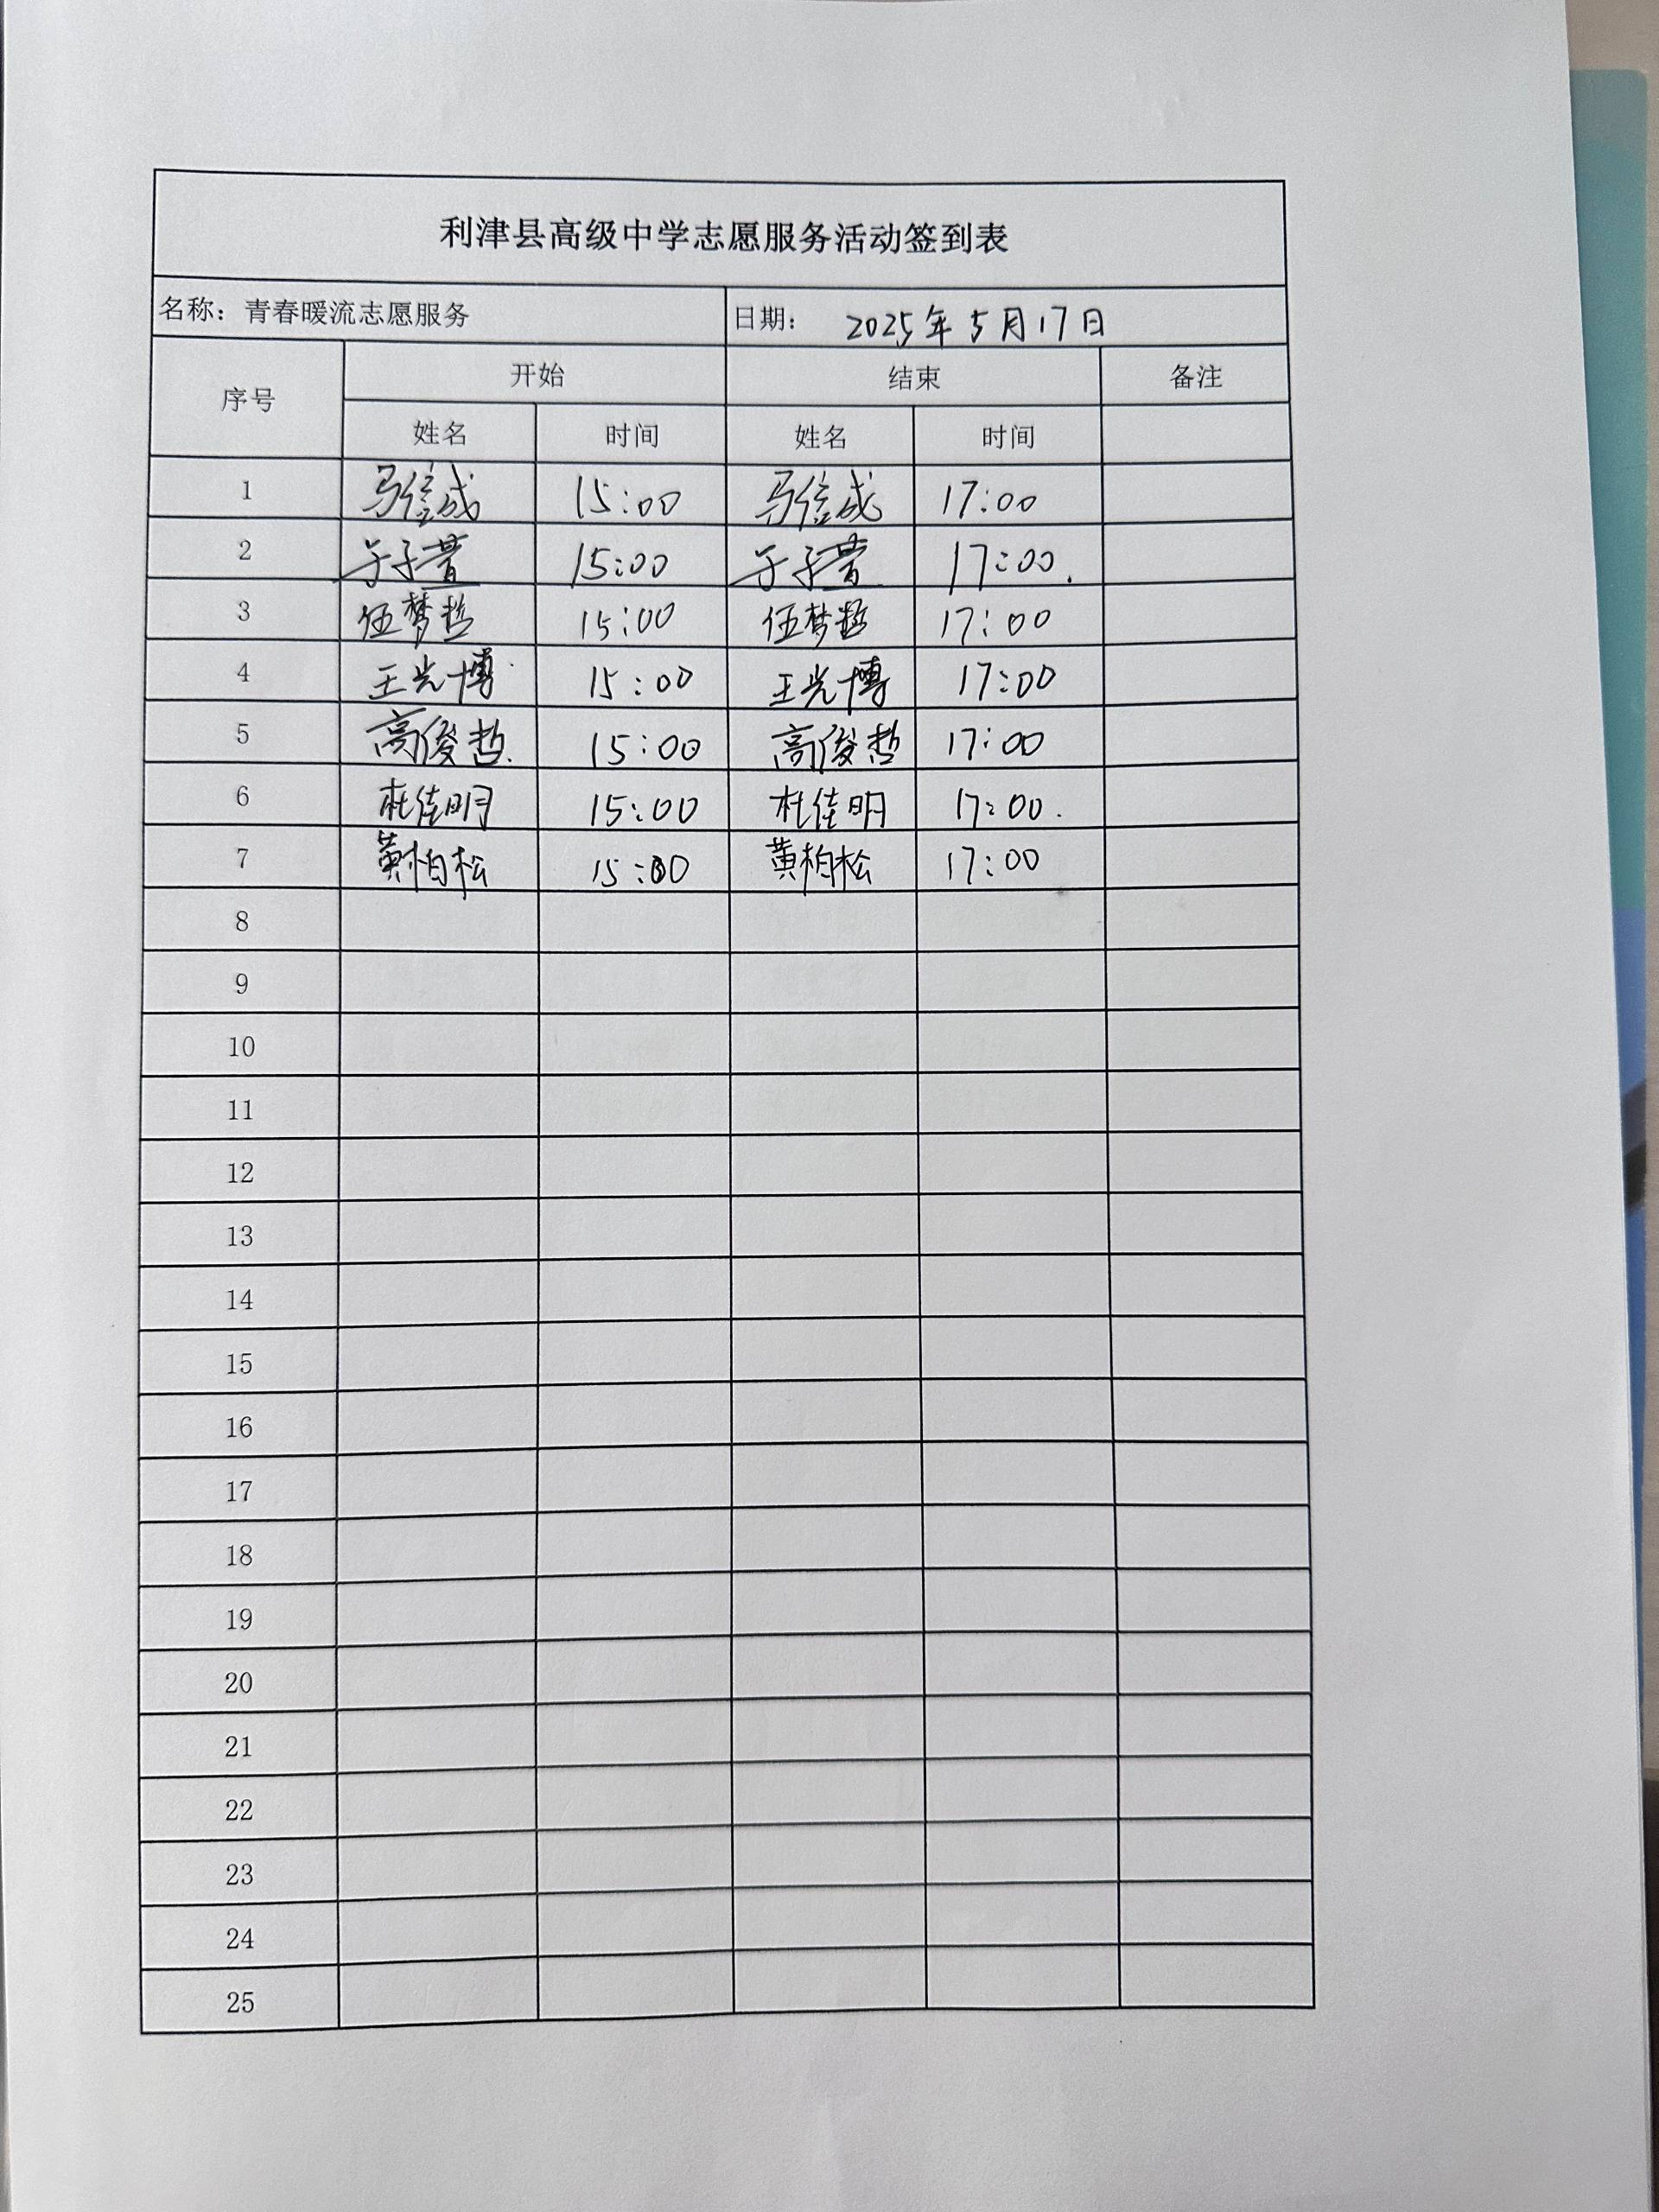 利津县高级中学志愿服务活动签到表
名称：青春暖流志愿服务 日期： 2025年5月17日
序号 开始 结束 备注
姓名 时间 姓名 时间
1 马信成 15:00 马信成 17:00
2 于子萱 15:00 于子萱 17:00.
3 伍梦哲 15:00 伍梦哲 17:00
4 王光博 15:00 王光博 17:00
5 高俊哲. 15:00 高俊哲 17:00
6 杜佳明 15:00 杜佳明 17:00.
7 黄柏松 15:00 黄柏松 17:00
8
9
10
11
12
13
14
15
16
17
18
19
20
21
22
23
24
25